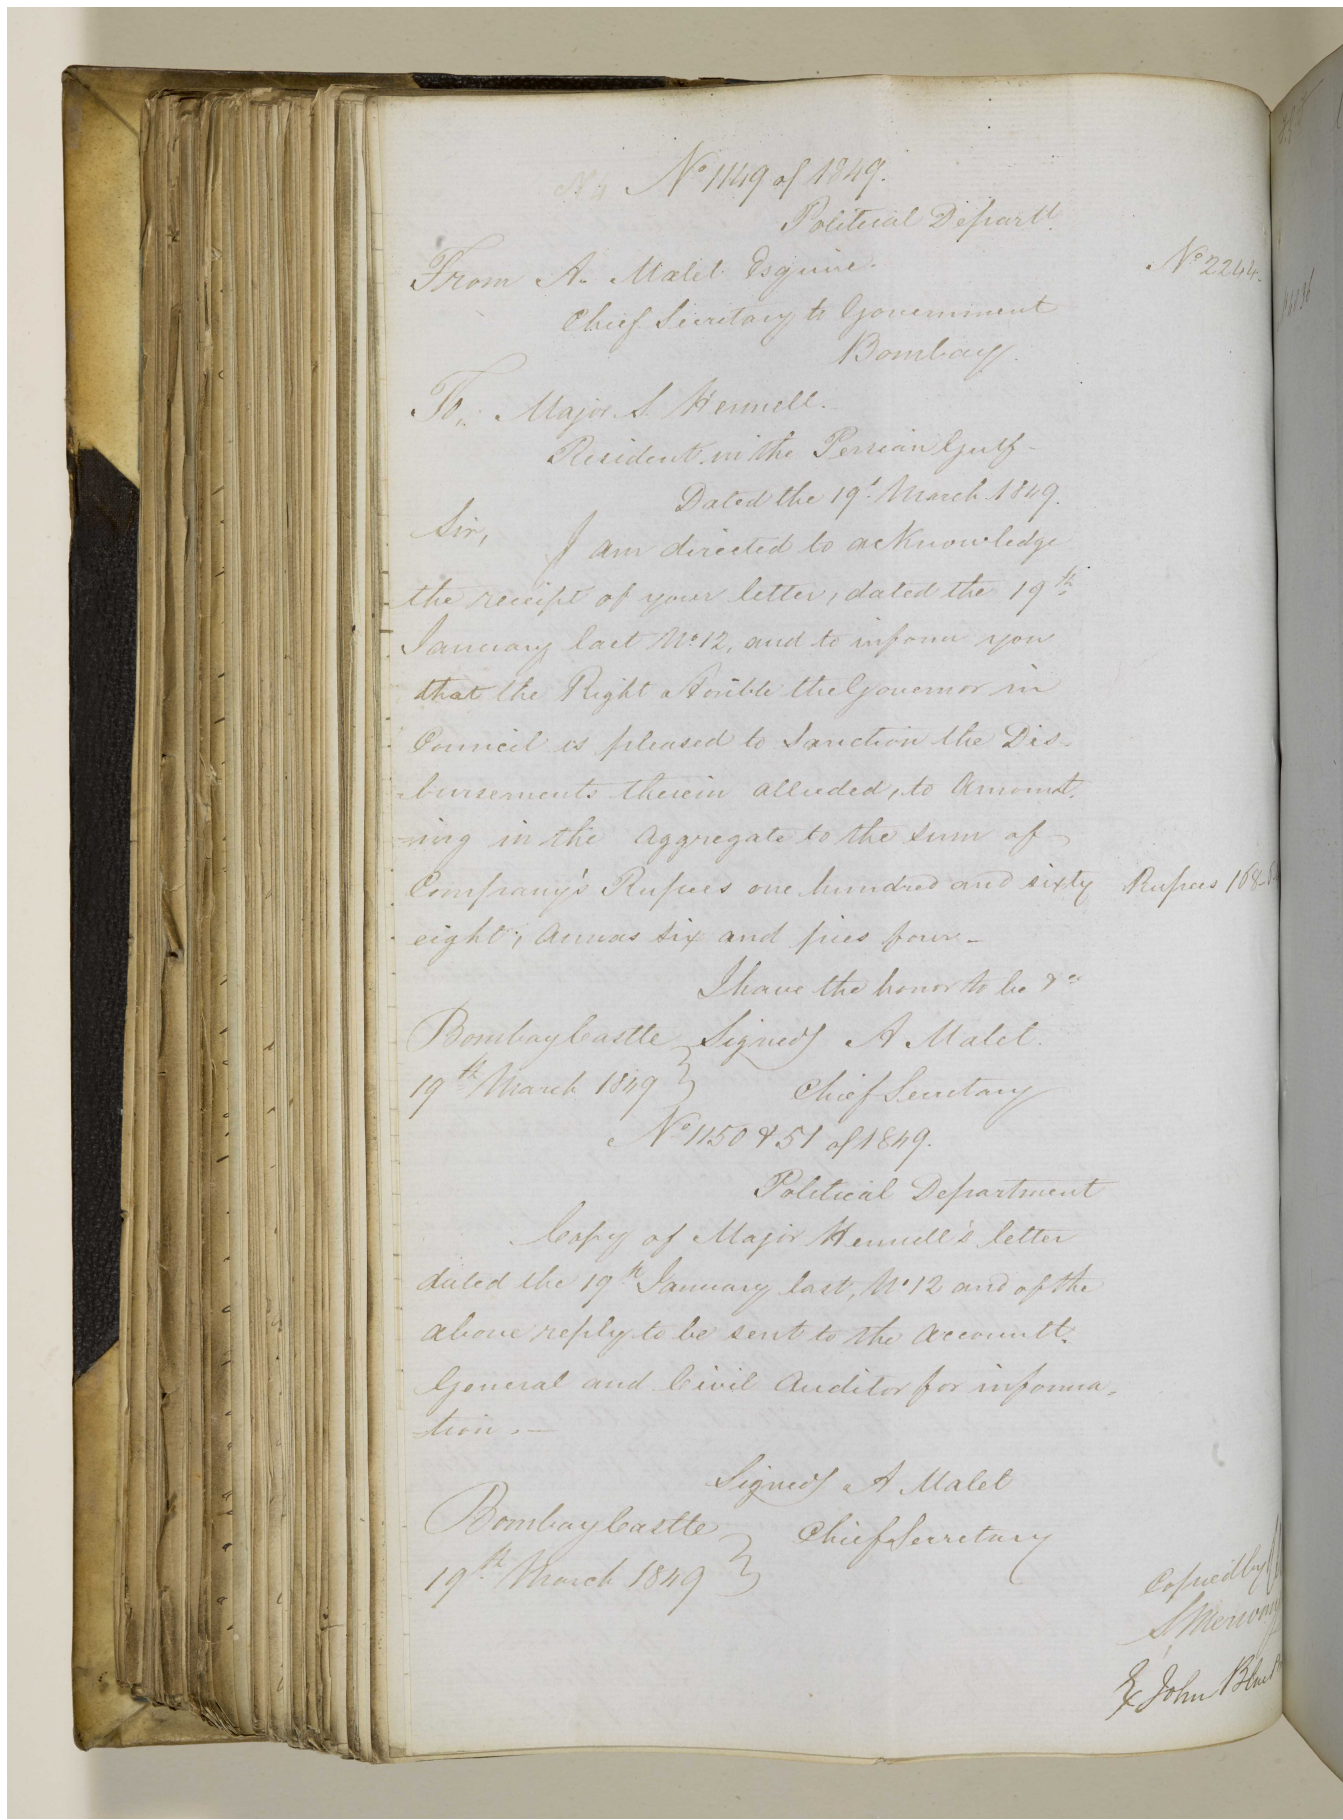 No 1149 of 1849.
Political Departt.
From A. Malet Esquire.
No 2244.
Chief Secretary to Government
Bombay.
To,, Major S. Hennell.
Resident in the Persian Gulf-
Dated the 19th March 1849.
Sir, I am directed to acknowledge
the receipt of your letter, dated the 19th
January last No 12, and to inform you
that the Right Honble the Governor in
Council is pleased to sanction the Dis-
-bursements therein alluded, to Amount-
-ing in the Aggregate to the sum of
Company's Rupees one hundred and sixty
Rupees 168-6
eight; Annas six and pies four-
I have the honor to be &ca
Bombay Castle Signed/ A Malet.
19th March 1849 Chief Secretary
No 1150 & 51 of 1849.
Political Department
Copy of Major Hennell's letter
dated the 19th January last, No 12 and of the
above reply to be sent to the Accountt.
General and Civil Auditor for informa-
-tion.-
Signed/ A Malet
Bombay Castle Chief Secretary
19th March 1849
Copied by
Ex John